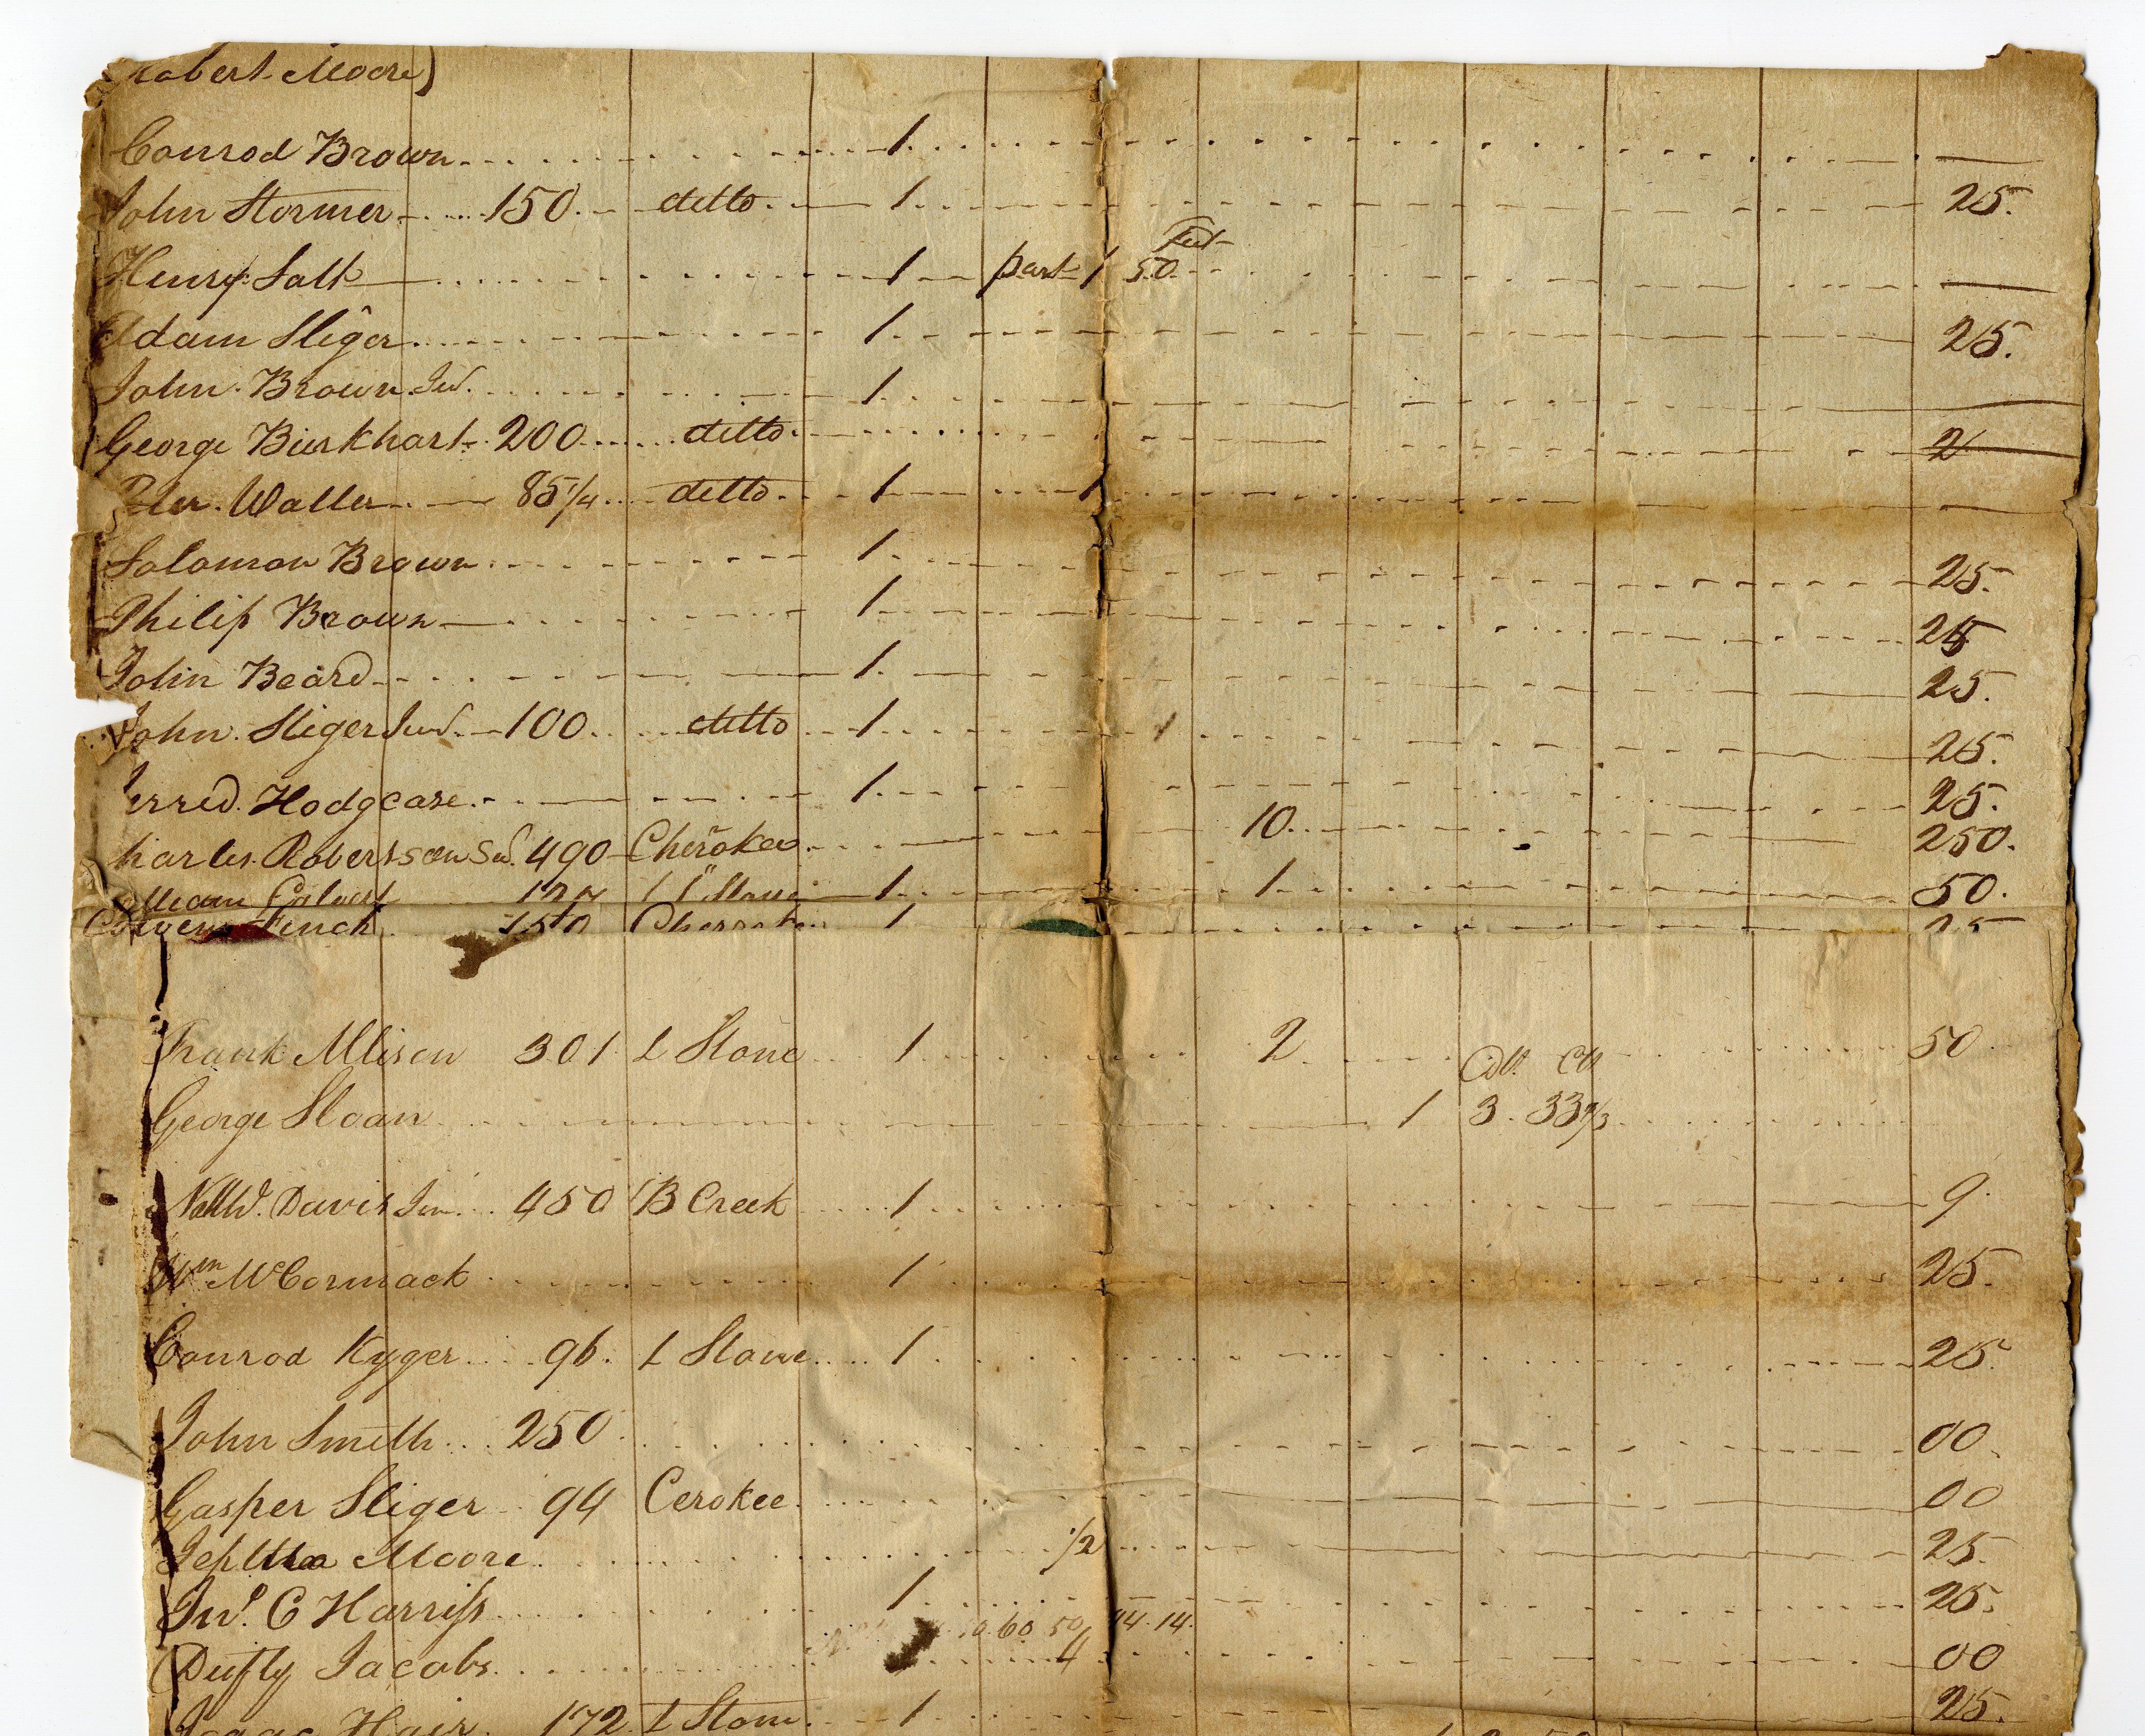 Robert Moore)
Conrod Brown 1
John Stormer 150 ditto 1 25.
feet
Henry Salt 1 part 1 50
Adam Sliger 1 25.
John Brown Jud. 1
George Burkhart 200 ditto 2
Peter Waller 85 1/4 ditto 1 1
Solomon Brown 1 25.
Philip Brown 1 25
John Beard 1 25.
John Sliger Jud. 100 ditto 1 1 25.
Jerred Hodgcase 1 25.
harles Robertson Sr. 490 Cherokee 10 250.
William Calvert 127 L Stone 1 1 50.
Finch 150 Cherokee 1 25
Frank Allison 301 L Stone 1 2 50
Doll. Cts
George Sloan 1 3. 33 1/3
Nathl. Davis Jun. 450 B Creek 1 9.
Wm McCormack 1 25.
Conrod Kyger 96. L Stone 1 25.
John Smith 250 00.
Gasper Sliger 94 Cerokee 00
Jeptha Moore 1/2 25.
Jno. C Harriss 1 25.
60 50 14.14.
Dufly Jacobs 4 00
Isaac Hair 172 L Stone 1 25.